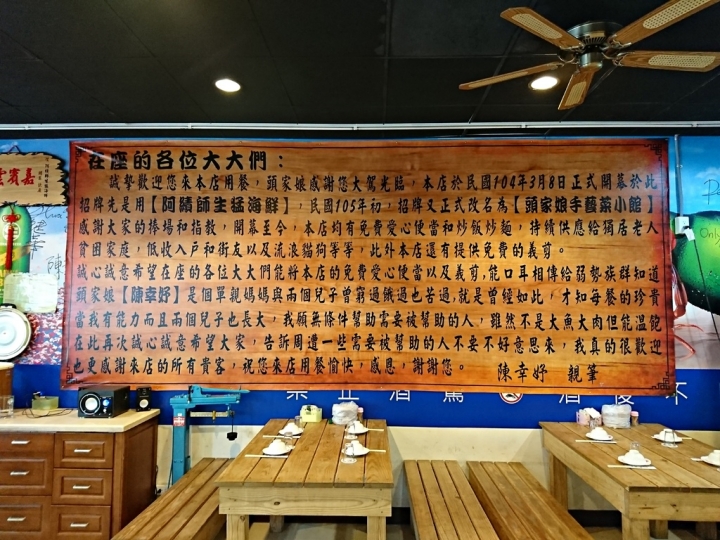 在座的各位大大們：
誠摯歡迎您來本店用餐，頭家娘感謝您大駕光臨，本店於民國104年3月8日正式開幕於此
招牌先是用【阿隋師生猛海鮮】，民國105年初，招牌又正式改名為【頭家娘手藝菜小館】
感謝大家的捧場和指教，開幕至今，本店均有免費愛心便當和炒飯炒麵，持續供應給獨居老人
貧困家庭，低收入戶和街友以及流浪貓狗等等，此外本店還有提供免費的義剪。
誠心誠意希望在座的各位大大們能將本店的免費愛心便當以及義剪，能口耳相傳給弱勢族群知道
頭家娘【陳幸妤】是個單親媽媽與兩個兒子曾窮過餓過也苦過，就是曾經如此，才知每餐的珍貴
當我有能力而且兩個兒子也長大，我願無條件幫助需要被幫助的人，雖然不是大魚大肉但能溫飽
在此再次誠心誠意希望大家，告訴周遭一些需要被幫助的人不要不好意思來，我真的很歡迎
也更感謝來店的所有貴客，祝您來店用餐愉快，感恩，謝謝您。
陳幸妤 親筆
嘉賓
陳
Only
禁止酒駕
酒後不